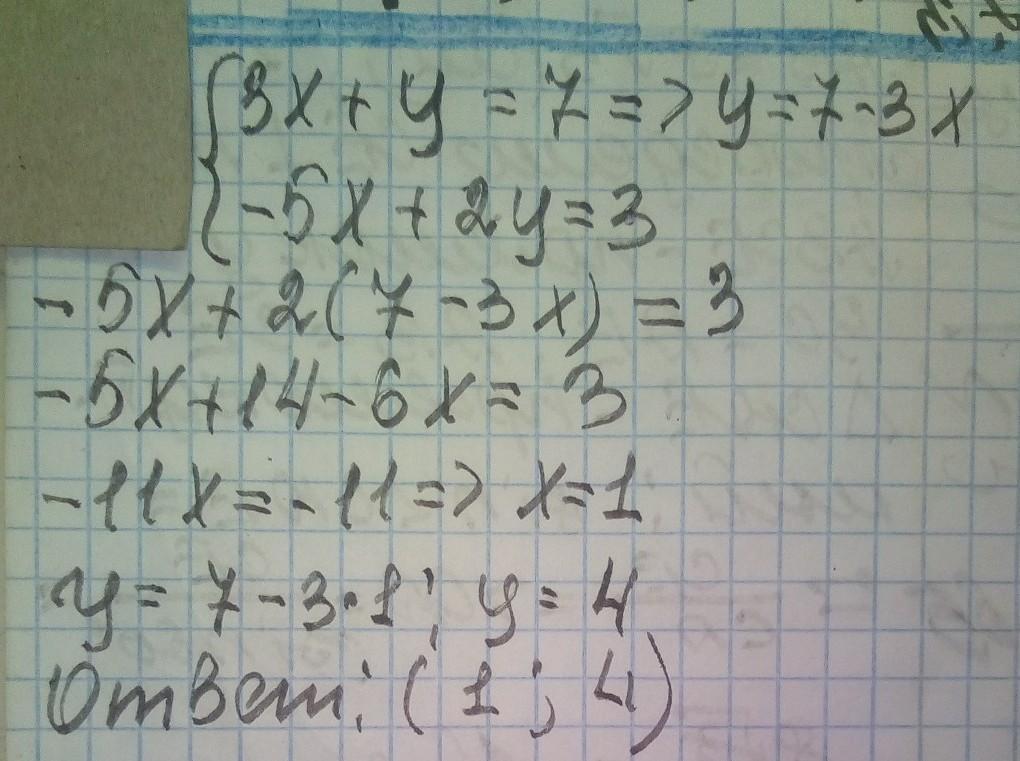 3x + y = 7 => y = 7 - 3x
-5x + 2y = 3
-5x + 2(7 - 3x) = 3
-5x + 14 - 6x = 3
-11x = -11 => x = 1
y = 7 - 3·1; y = 4
Ответ: (1; 4)